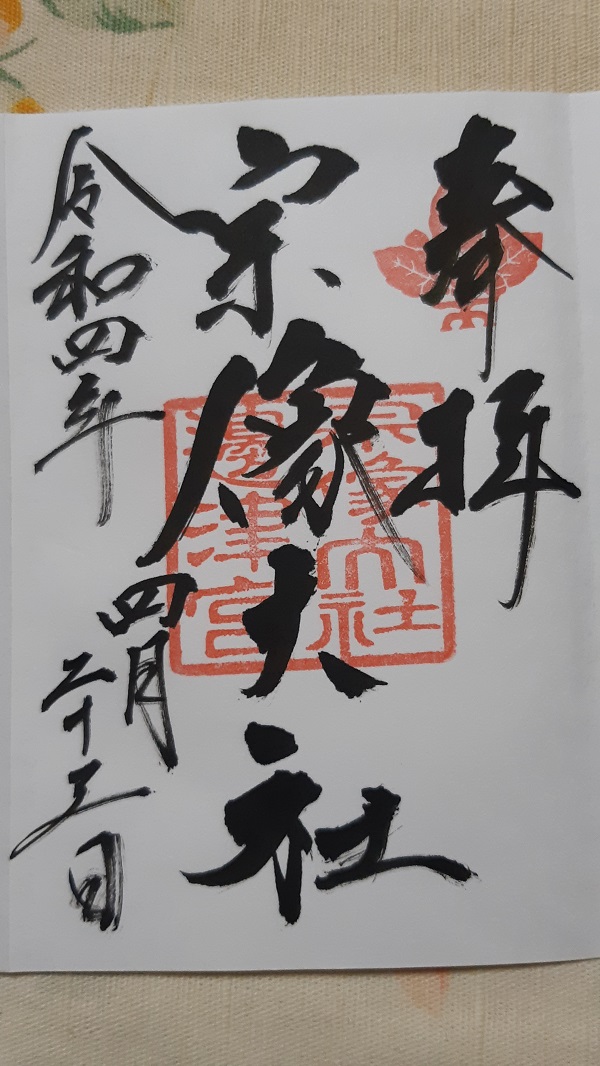 奉拝
宗像大社
宗像大社
邊津宮
令和四年
四月
二十三日